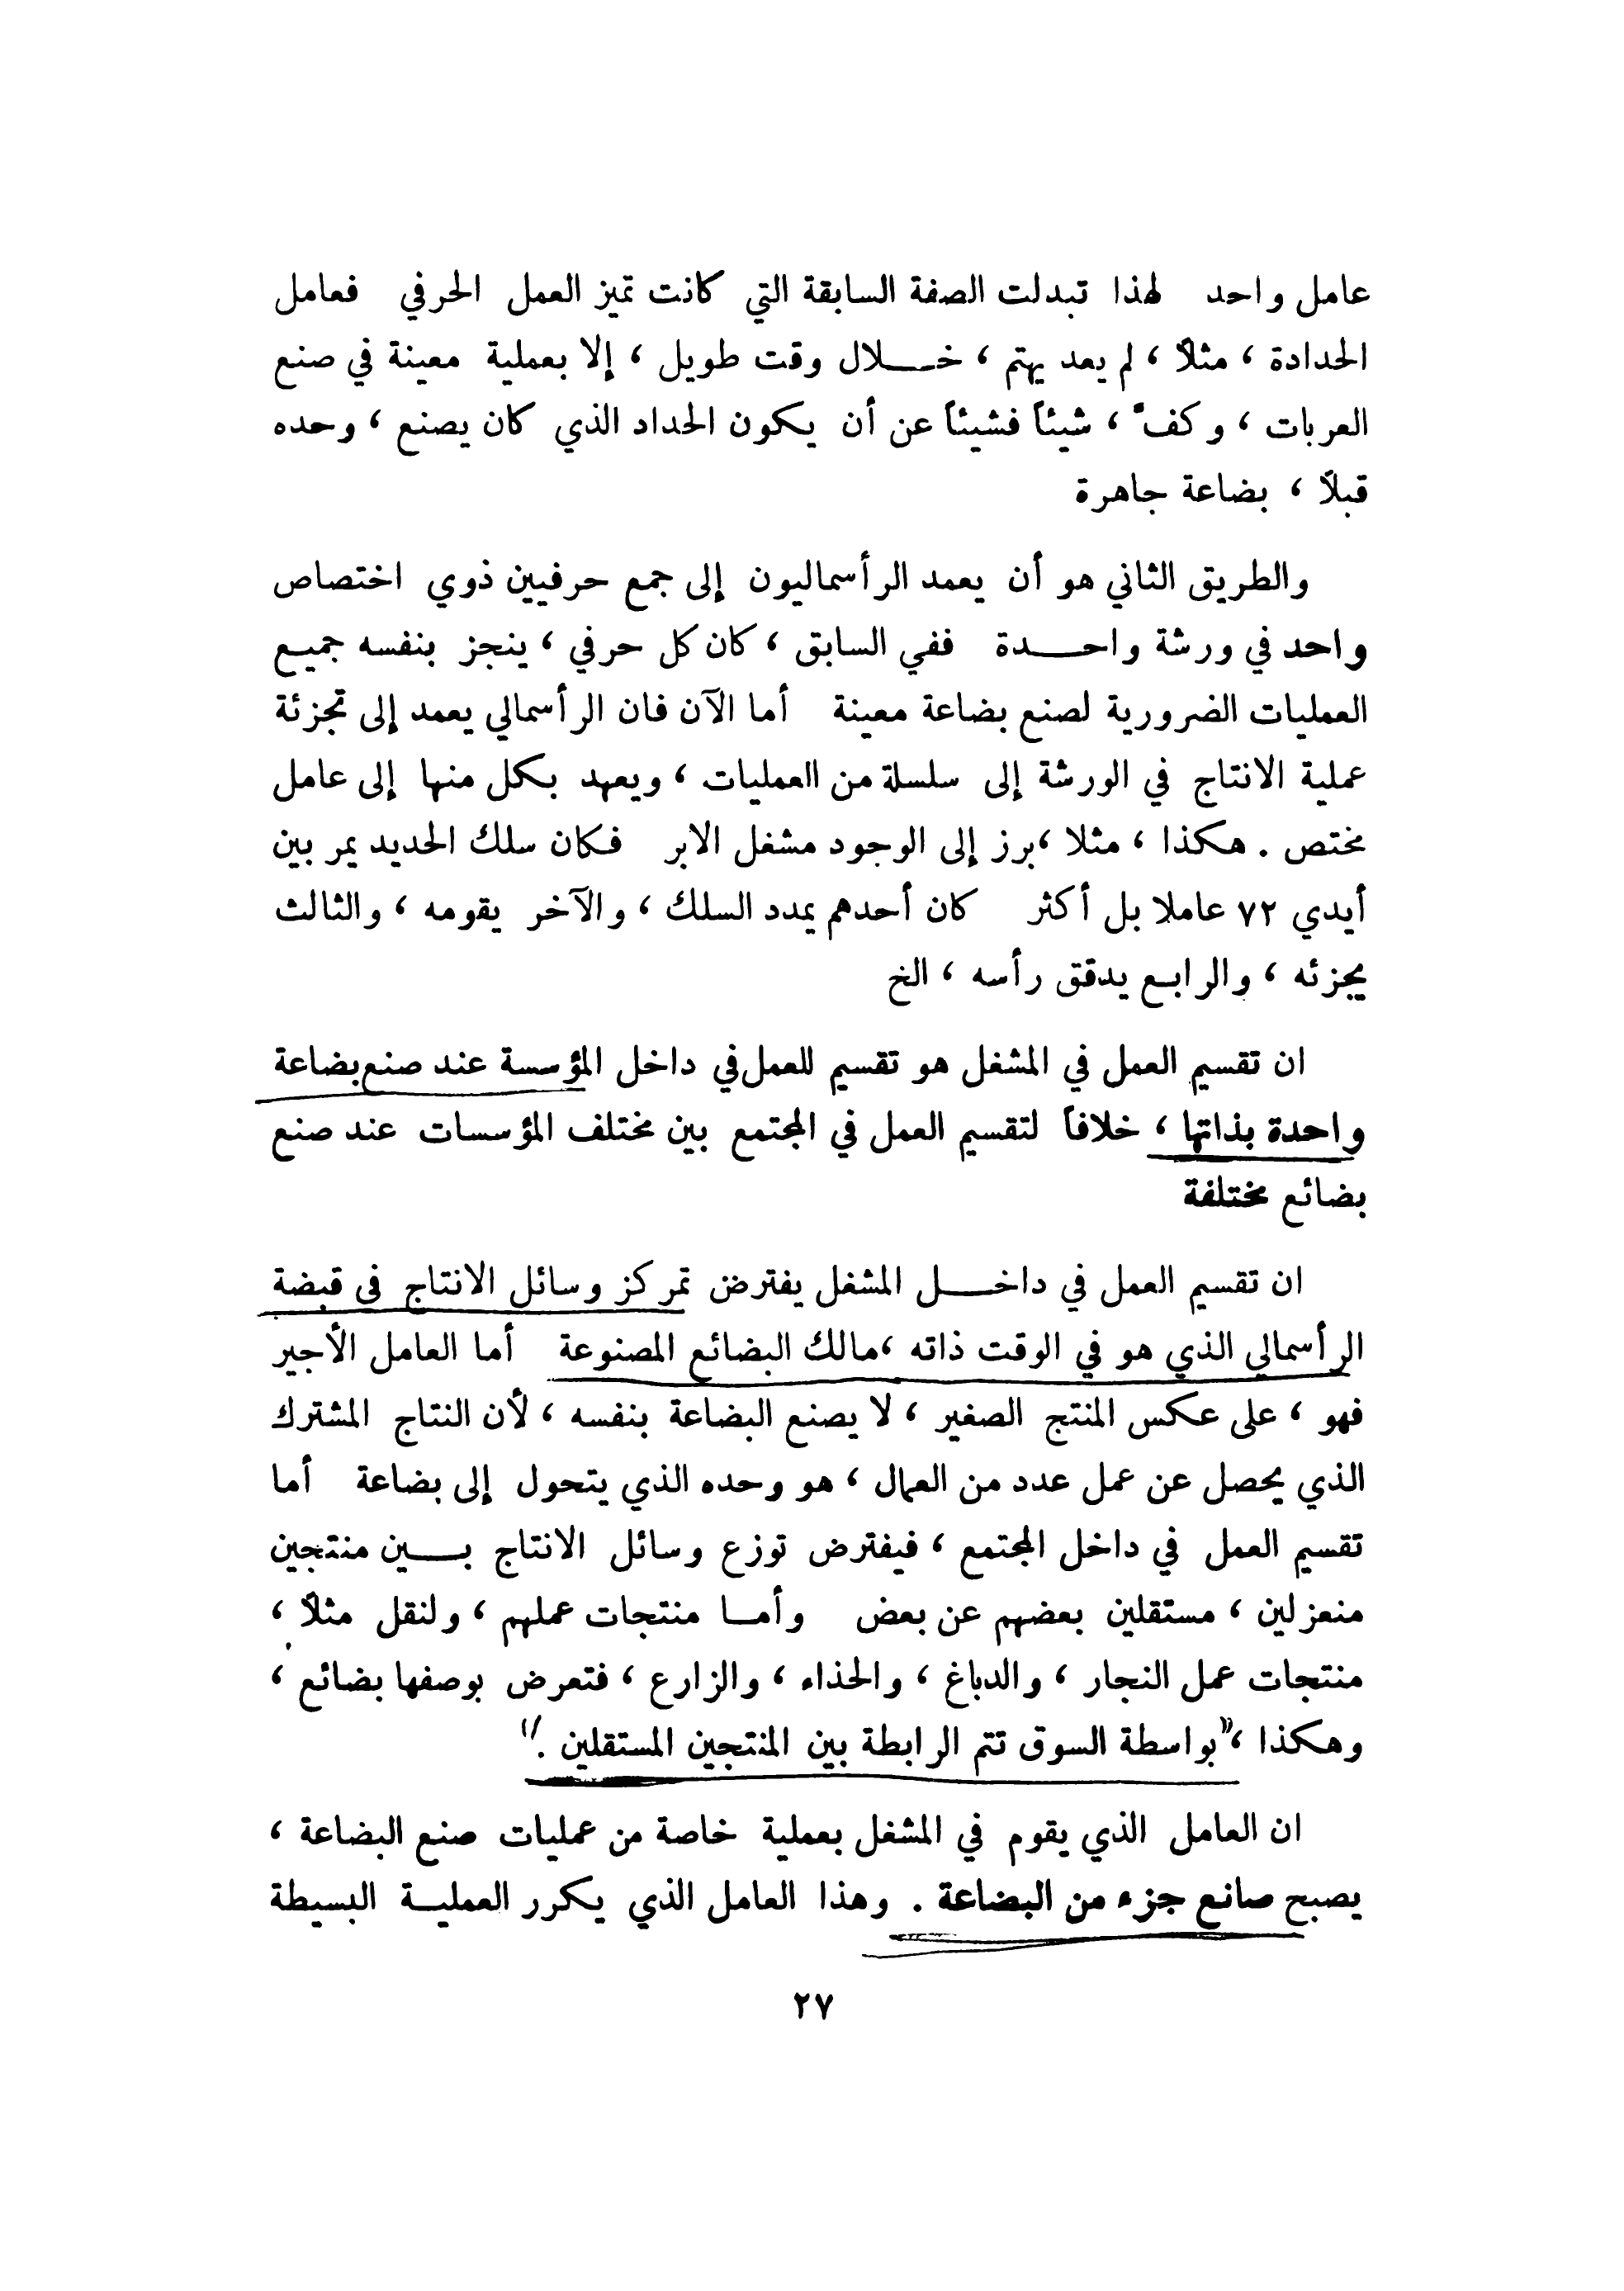 عامل واحد لهذا تبدلت الصفة السابقة التي كانت تميز العمل الحرفي فعامل
الحدادة ، مثلاً ، لم يعد يهتم ، خــلال وقت طويل ، إلا بعملية معينة في صنع
العربات ، وكفّ ، شيئاً فشيئاً عن أن يكون الحداد الذي كان يصنع ، وحده
قبلاً ، بضاعة جاهرة
والطريق الثاني هو أن يعمد الرأسماليون إلى جمع حرفيين ذوي اختصاص
واحد في ورشة واحــدة ففي السابق ، كان كل حرفي ، ينجز بنفسه جميع
العمليات الضرورية لصنع بضاعة معينة أما الآن فان الرأسمالي يعمد إلى تجزئة
عملية الانتاج في الورشة إلى سلسلة من العمليات ، ويعهد بكل منها إلى عامل
مختص . هكذا ، مثلا ، برز إلى الوجود مشغل الابر فكان سلك الحديد يمر بين
أيدي ٧٢ عاملا بل أكثر كان أحدهم يمدد السلك ، والآخر يقومه ، والثالث
يجزئه ، والرابع يدقق رأسه ، الخ
ان تقسيم العمل في المشغل هو تقسيم للعمل في داخل المؤسسة عند صنع بضاعة
واحدة بذاتها ، خلافاً لتقسيم العمل في المجتمع بين مختلف المؤسسات عند صنع
بضائع مختلفة
ان تقسيم العمل في داخــل المشغل يفترض تمركز وسائل الانتاج في قبضة
الرأسمالي الذي هو في الوقت ذاته ، مالك البضائع المصنوعة أما العامل الأجير
فهو ، على عكس المنتج الصغير ، لا يصنع البضاعة بنفسه ، لأن النتاج المشترك
الذي يحصل عن عمل عدد من العمال ، هو وحده الذي يتحول إلى بضاعة أما
تقسيم العمل في داخل المجتمع ، فيفترض توزع وسائل الانتاج بــين منتجين
منعزلين ، مستقلين بعضهم عن بعض وأمـا منتجات عملهم ، ولنقل مثلاً ،
منتجات عمل النجار ، والدباغ ، والحذاء ، والزارع ، فتعرض بوصفها بضائع ،
وهكذا ، "بواسطة السوق تتم الرابطة بين المنتجين المستقلين ."
ان العامل الذي يقوم في المشغل بعملية خاصة من عمليات صنع البضاعة ،
يصبح صانع جزء من البضاعة . وهذا العامل الذي يكرر العمليـة البسيطة
٢٧